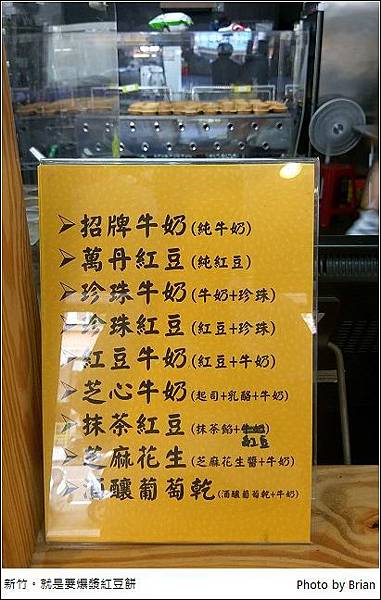 ➤招牌牛奶(純牛奶)
➤萬丹紅豆(純紅豆)
➤珍珠牛奶(牛奶+珍珠)
➤珍珠紅豆(紅豆+珍珠)
➤紅豆牛奶(紅豆+牛奶)
➤芝心牛奶(起司+乳酪+牛奶)
➤抹茶紅豆(抹茶餡+牛奶)
紅豆
➤芝麻花生(芝麻花生醬+牛奶)
➤酒釀葡萄乾(酒釀葡萄乾+牛奶)
新竹。就是要爆漿紅豆餅
Photo by Brian